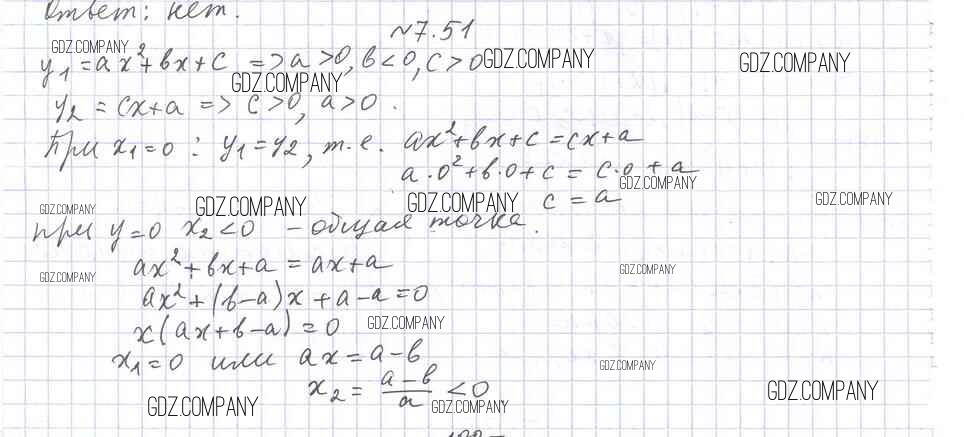 Ответ: нет.
№7.51
GDZ.COMPANY
y₁ = ax² + bx + c => a > 0, b < 0, c > 0 GDZ.COMPANY GDZ.COMPANY
GDZ.COMPANY
y₂ = cx + a => c > 0, a > 0.
При x₁ = 0 : y₁ = y₂, т.е. ax² + bx + c = cx + a
a · 0² + b · 0 + c = c · 0 + a
GDZ.COMPANY
GDZ.COMPANY GDZ.COMPANY GDZ.COMPANY c = a GDZ.COMPANY
при y = 0 x₂ < 0 – общая точка.
ax² + bx + a = ax + a
GDZ.COMPANY GDZ.COMPANY
ax² + (b – a)x + a – a = 0
x(ax + b – a) = 0 GDZ.COMPANY
x₁ = 0 или ax = a – b
GDZ.COMPANY
x₂ = (a – b)/a < 0
GDZ.COMPANY GDZ.COMPANY GDZ.COMPANY